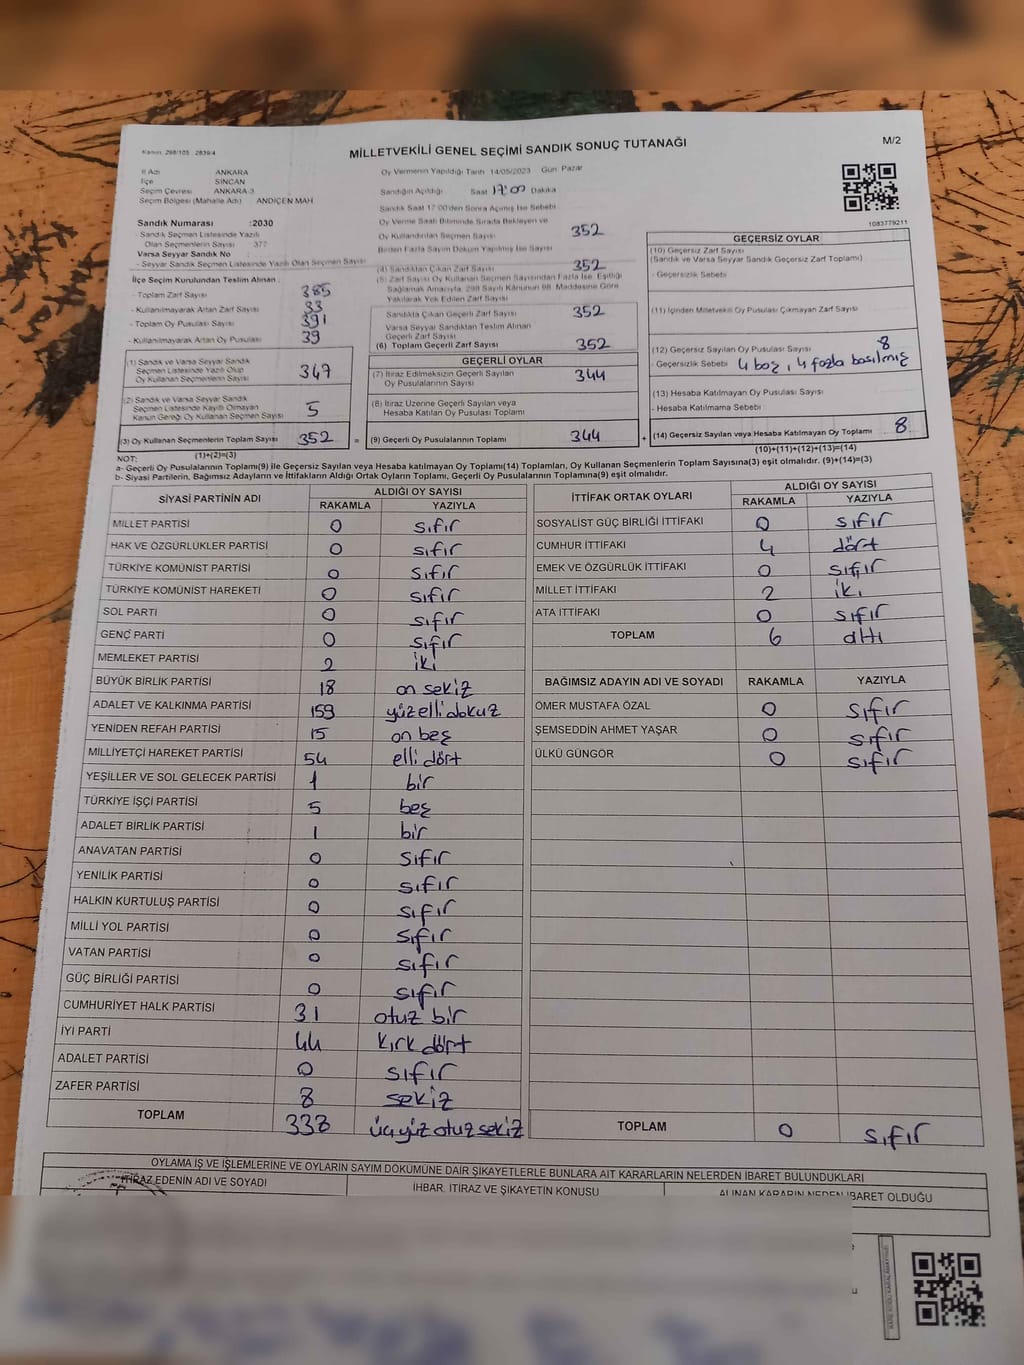 Kanun: 298/105 : 2839/4
MİLLETVEKİLİ GENEL SEÇİMİ SANDIK SONUÇ TUTANAĞI
M/2
İl Adı ANKARA
İlçe SİNCAN
Seçim Çevresi ANKARA-3
Seçim Bölgesi (Mahalle Adı) ANDİÇEN MAH
Sandık Numarası :2030
- Sandık Seçmen Listesinde Yazılı
Olan Seçmenlerin Sayısı 377
Varsa Seyyar Sandık No
- Seyyar Sandık Seçmen Listesinde Yazılı Olan Seçmen Sayısı
İlçe Seçim Kurulundan Teslim Alınan :
- Toplam Zarf Sayısı 385
- Kullanılmayarak Artan Zarf Sayısı 33
- Toplam Oy Pusulası Sayısı 391
- Kullanılmayarak Artan Oy Pusulası 39
(1) Sandık ve Varsa Seyyar Sandık
Seçmen Listesinde Yazılı Olup
Oy Kullanan Seçmenlerin Sayısı 347
(2) Sandık ve Varsa Seyyar Sandık
Seçmen Listesinde Kayıtlı Olmayan
Kanun Gereği Oy Kullanan Seçmen Sayısı 5
(3) Oy Kullanan Seçmenlerin Toplam Sayısı 352 =
(1)+(2)=(3)
Oy Vermenin Yapıldığı Tarih 14/05/2023 Gün Pazar
Sandığın Açıldığı Saat 17:00 Dakika
Sandık Saat 17:00'den Sonra Açılmış İse Sebebi
Oy Verme Saati Bitiminde Sırada Bekleyen ve
Oy Kullandırılan Seçmen Sayısı 352
Birden Fazla Sayım Döküm Yapılmış İse Sayısı
(4) Sandıktan Çıkan Zarf Sayısı 352
(5) Zarf Sayısı Oy Kullanan Seçmen Sayısından Fazla İse, Eşitliği
Sağlamak Amacıyla, 298 Sayılı Kanunun 98. Maddesine Göre
Yakılarak Yok Edilen Zarf Sayısı
Sandıkta Çıkan Geçerli Zarf Sayısı 352
Varsa Seyyar Sandıktan Teslim Alınan
Geçerli Zarf Sayısı
(6) Toplam Geçerli Zarf Sayısı 352
GEÇERLİ OYLAR
(7) İtiraz Edilmeksizin Geçerli Sayılan
Oy Pusulalarının Sayısı 344
(8) İtiraz Üzerine Geçerli Sayılan veya
Hesaba Katılan Oy Pusulası Toplamı
(9) Geçerli Oy Pusulalarının Toplamı 344 +
1083779211
GEÇERSİZ OYLAR
(10) Geçersiz Zarf Sayısı
(Sandık ve Varsa Seyyar Sandık Geçersiz Zarf Toplamı)
- Geçersizlik Sebebi
(11) İçinden Milletvekili Oy Pusulası Çıkmayan Zarf Sayısı
(12) Geçersiz Sayılan Oy Pusulası Sayısı 8
- Geçersizlik Sebebi 4 boş, 4 fazla basılmış
(13) Hesaba Katılmayan Oy Pusulası Sayısı
- Hesaba Katılmama Sebebi
(14) Geçersiz Sayılan veya Hesaba Katılmayan Oy Toplamı 8
(10)+(11)+(12)+(13)=(14)
NOT:
a- Geçerli Oy Pusulalarının Toplamı(9) ile Geçersiz Sayılan veya Hesaba katılmayan Oy Toplamı(14) Toplamları, Oy Kullanan Seçmenlerin Toplam Sayısına(3) eşit olmalıdır. (9)+(14)=(3)
b- Siyasi Partilerin, Bağımsız Adayların ve İttifakların Aldığı Ortak Oyların Toplamı, Geçerli Oy Pusulalarının Toplamına(9) eşit olmalıdır.
SİYASİ PARTİNİN ADI
ALDIĞI OY SAYISI
RAKAMLA YAZIYLA
MİLLET PARTİSİ 0 sıfır
HAK VE ÖZGÜRLÜKLER PARTİSİ 0 sıfır
TÜRKİYE KOMÜNİST PARTİSİ 0 sıfır
TÜRKİYE KOMÜNİST HAREKETİ 0 sıfır
SOL PARTİ 0 sıfır
GENÇ PARTİ 0 sıfır
MEMLEKET PARTİSİ 2 iki
BÜYÜK BİRLİK PARTİSİ 18 on sekiz
ADALET VE KALKINMA PARTİSİ 159 yüzelli dokuz
YENİDEN REFAH PARTİSİ 15 on beş
MİLLİYETÇİ HAREKET PARTİSİ 54 elli dört
YEŞİLLER VE SOL GELECEK PARTİSİ 1 bir
TÜRKİYE İŞÇİ PARTİSİ 5 beş
ADALET BİRLİK PARTİSİ 1 bir
ANAVATAN PARTİSİ 0 sıfır
YENİLİK PARTİSİ 0 sıfır
HALKIN KURTULUŞ PARTİSİ 0 sıfır
MİLLİ YOL PARTİSİ 0 sıfır
VATAN PARTİSİ 0 sıfır
GÜÇ BİRLİĞİ PARTİSİ 0 sıfır
CUMHURİYET HALK PARTİSİ 31 otuz bir
İYİ PARTİ 44 kırk dört
ADALET PARTİSİ 0 sıfır
ZAFER PARTİSİ 8 sekiz
TOPLAM 338 üçyüz otuz sekiz
İTTİFAK ORTAK OYLARI
ALDIĞI OY SAYISI
RAKAMLA YAZIYLA
SOSYALİST GÜÇ BİRLİĞİ İTTİFAKI 0 sıfır
CUMHUR İTTİFAKI 4 dört
EMEK VE ÖZGÜRLÜK İTTİFAKI 0 sıfır
MİLLET İTTİFAKI 2 iki
ATA İTTİFAKI 0 sıfır
TOPLAM 6 altı
BAĞIMSIZ ADAYIN ADI VE SOYADI RAKAMLA YAZIYLA
ÖMER MUSTAFA ÖZAL 0 sıfır
ŞEMSEDDİN AHMET YAŞAR 0 sıfır
ÜLKÜ GÜNGÖR 0 sıfır
TOPLAM 0 sıfır
OYLAMA İŞ VE İŞLEMLERİNE VE OYLARIN SAYIM DÖKÜMÜNE DAİR ŞİKAYETLERLE BUNLARA AİT KARARLARIN NELERDEN İBARET BULUNDUKLARI
İTİRAZ EDENİN ADI VE SOYADI
İHBAR, İTİRAZ VE ŞİKAYETİN KONUSU
ALINAN KARARIN NEDEN İBARET OLDUĞU